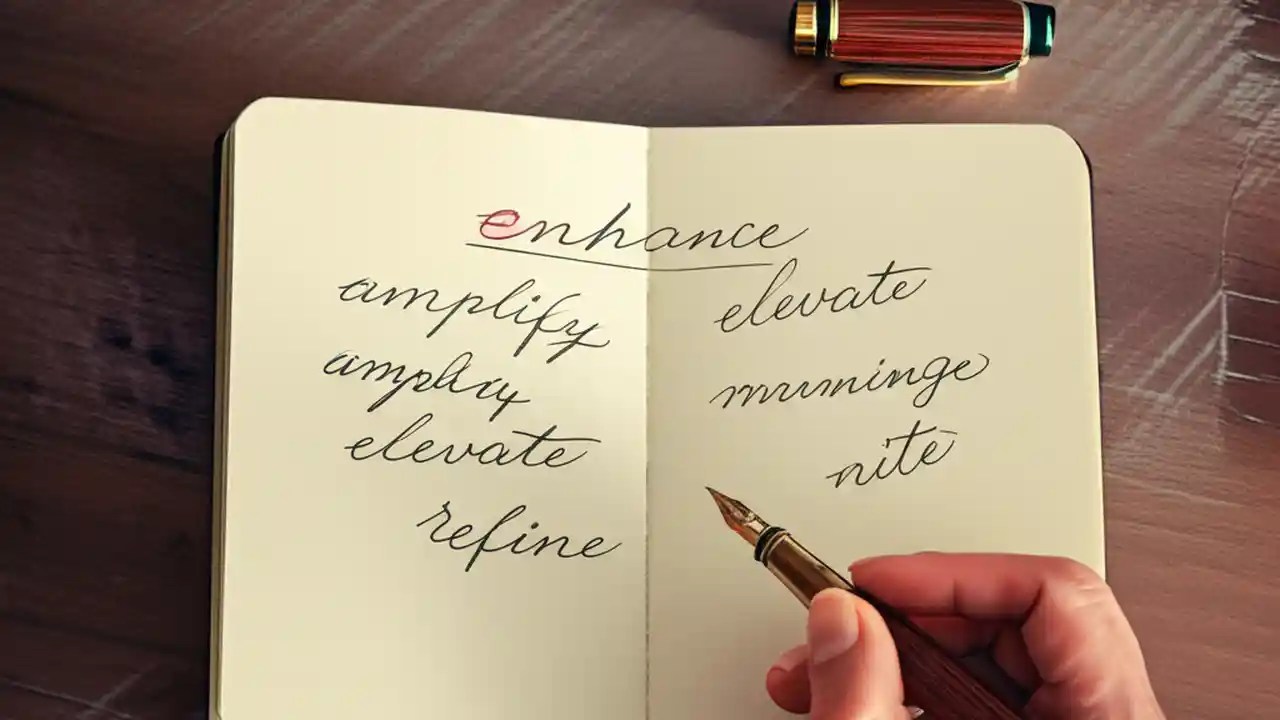 enhance
amplify
amplxy
elevate
refine
elevate
muminge
nite